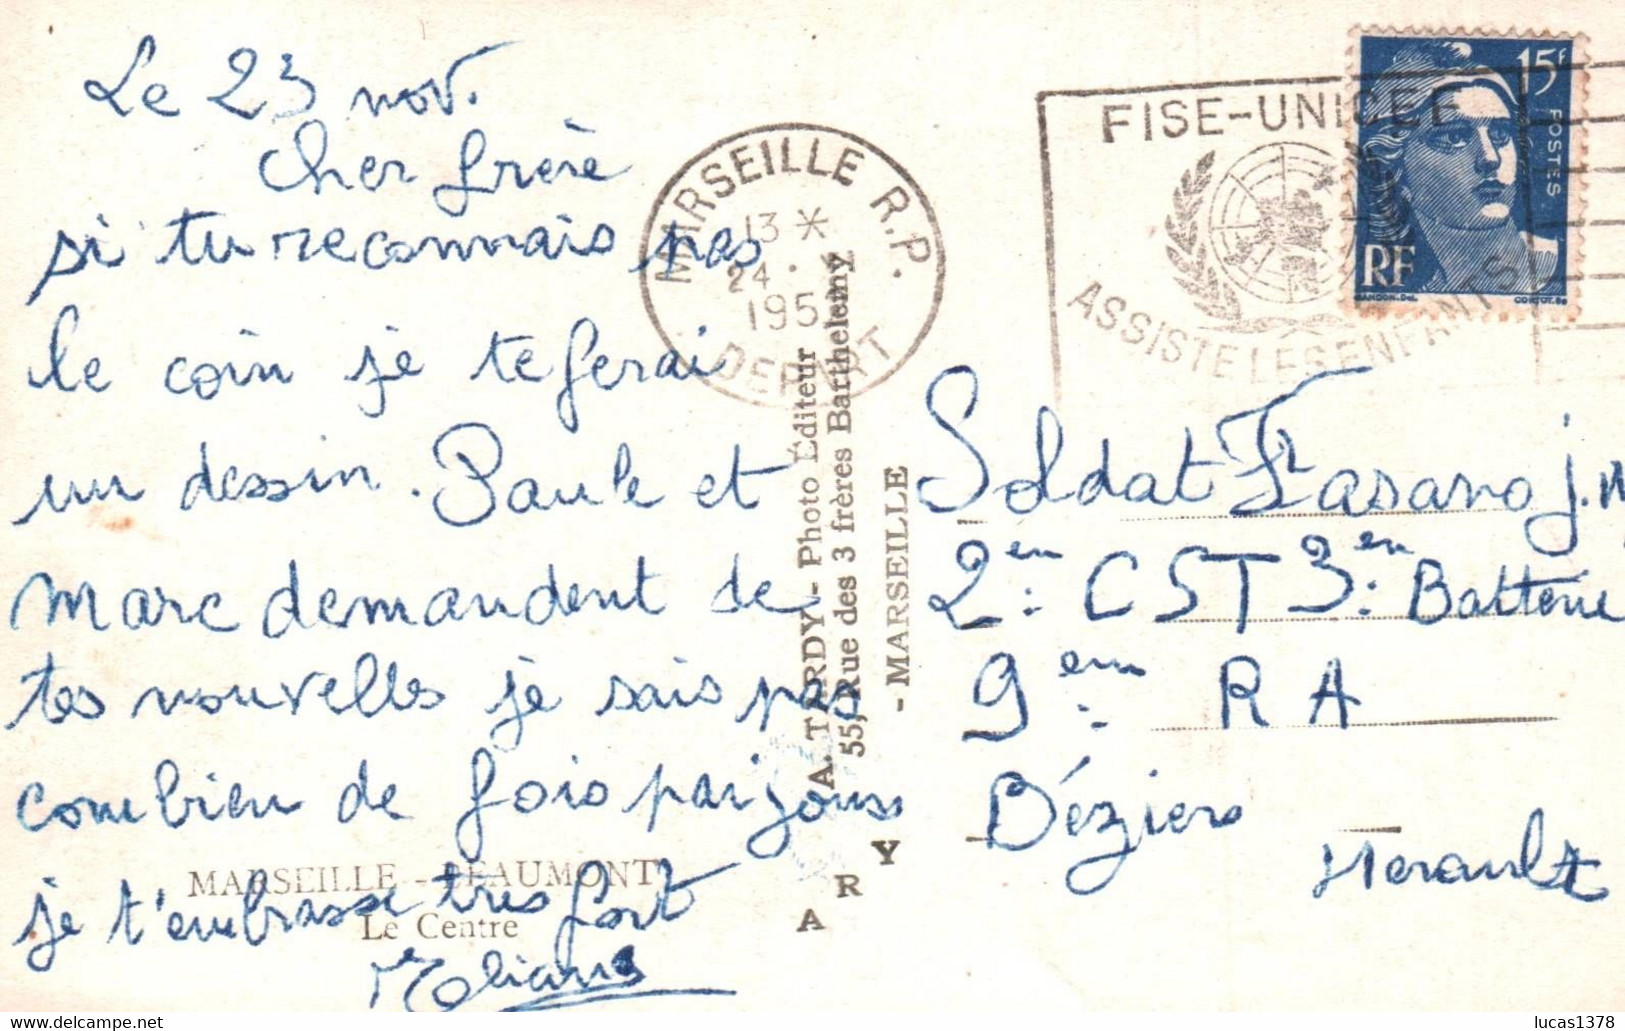 Le 23 nov.
Cher frère
si tu reconnais pas
le coin je te ferai
un dessin. Paule et
Marc demandent de
tes nouvelles je sais pas
combien de fois par jours
je t'embrasse très fort
MARSEILLE - BEAUMONT
Le Centre
MARSEILLE R.P.
13 *
24
195
DEPART
A. TARDY - Photo Éditeur
55, Rue des 3 frères Barthelemy
- MARSEILLE -
ARY
FISE-UNICEF
ASSISTE LES ENFANTS
15f
POSTES
RF
GANDON.Del.
CORTOT.Sc
Soldat Fasano J.M
2en CST 3en Batterie
9em RA
Béziers
Herault
lucas1378
www.delcampe.net